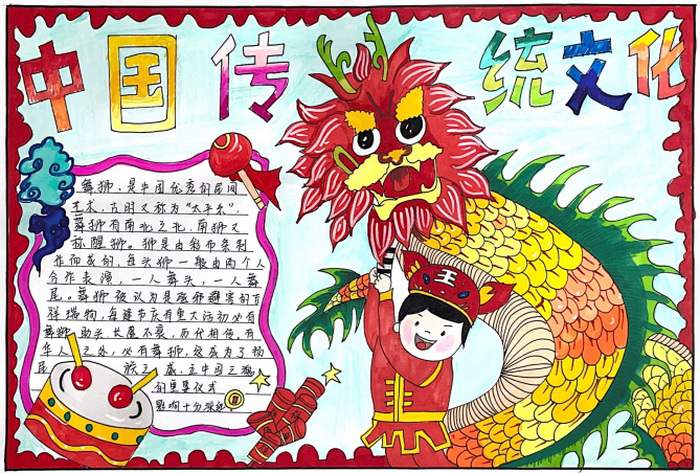 中国传统文化
舞狮，是中国优秀的民间
艺术，古时又称为"太平乐"，
舞狮有南北之北，南狮又
称醒狮。狮是由彩布条制
作而成的，每头狮一般由两个人
合作表演，一人舞头，一人舞
尾。舞狮被认为是驱邪避害的吉
祥瑞物，每逢节庆有重大活动必有
舞狮助兴长盛不衰，历代相传，有
华人之处，必有舞狮，这成为了扬
民族之威，立中国之魂
的重要仪式
影响十分深远
王